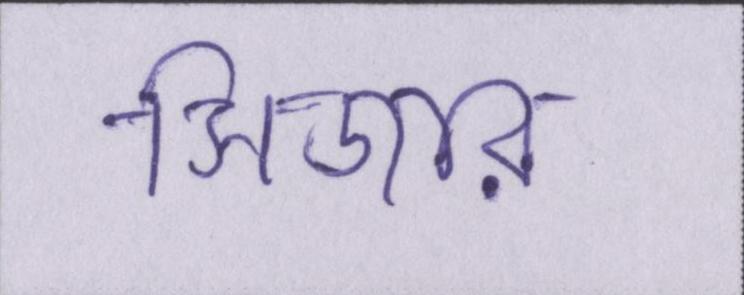 সিজার